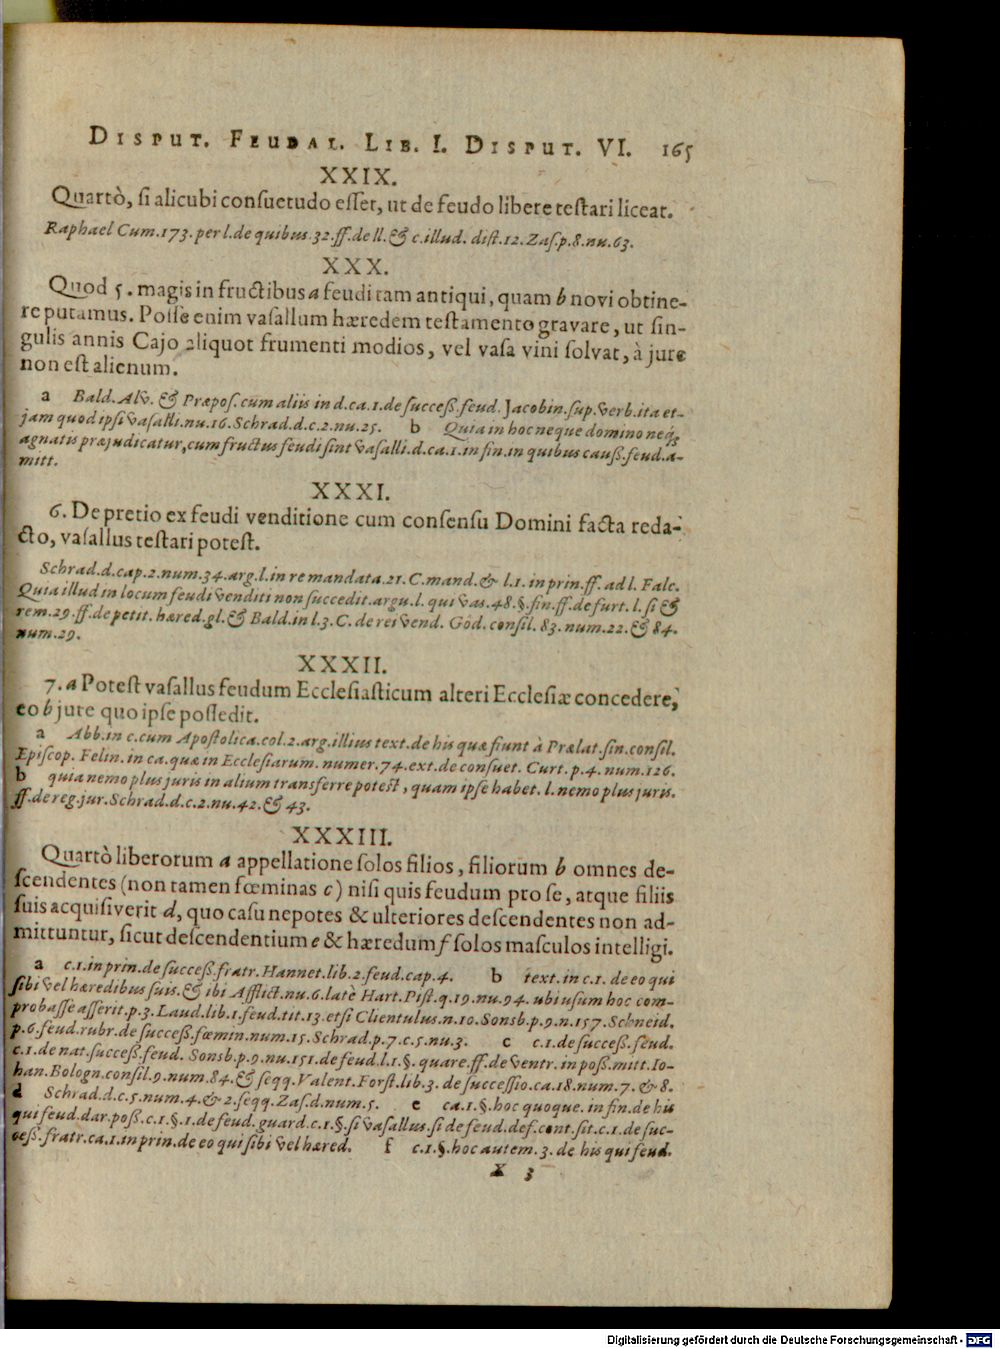 DISPUT. FEUDAL. LIB. I. DISPUT. VI. 165
XXIX.
Quartò, si alicubi consuetudo esset, ut de feudo libere testari liceat.
Raphael Cum. 173. per l. de quibus. 32. ff. de ll. & c. illud. dist. 12. Zas. p. 8. nu. 63.
XXX.
Quod 5. magis in fructibus a feudi tam antiqui, quam b novi obtine-
re putamus. Posse enim vasallum hæredem testamento gravare, ut sin-
gulis annis Cajo aliquot frumenti modios, vel vasa vini solvat, à jure
non est alienum.
a Bald. Alv. & Præpos. cum aliis in d. ca. 1. de success. feud. Jacobin. sup. verb. ita et-
jam quod ipsi vasalli. nu. 16. Schrad. d. c. 2. nu. 25. b Quia in hoc neque domino neq́;
agnatis præjudicatur, cum fructus feudi sint vasalli. d. ca. 1. in fin. in quibus causs. feud. a-
mitt.
XXXI.
6. De pretio ex feudi venditione cum consensu Domini facta reda-
cto, vasallus testari potest.
Schrad. d. cap. 2. num. 34. arg. l. in re mandata. 21. C. mand. & l. 1. in prin. ff. ad l. Falc.
Quia illud in locum feudi venditi non succedit. argu. l. qui vas. 48. §. fin. ff. de furt. l. si &
rem. 29. ff. de petit. hæred. gl. & Bald. in l. 3. C. de rei vend. God. consil. 83. num. 22. & 84.
num. 29.
XXXII.
7. a Potest vasallus feudum Ecclesiasticum alteri Ecclesiæ concedere,
eo b jure quo ipse possedit.
a Abb. in c. cum Apostolica. col. 2. arg. illius text. de his quæ fiunt à Prælat. sin. consil.
Episcop. Felin. in ca. quæ in Ecclesiarum. numer. 74. ext. de consuet. Curt. p. 4. num. 126.
b quia nemo plus juris in alium transferre potest, quam ipse habet. l. nemo plus juris.
ff. de reg. jur. Schrad. d. c. 2. nu. 42. & 43.
XXXIII.
Quartò liberorum a appellatione solos filios, filiorum b omnes de-
scendentes (non tamen fœminas c) nisi quis feudum pro se, atque filiis
suis acquisiverit d, quo casu nepotes & ulteriores descendentes non ad-
mittuntur, sicut descendentium e & hæredum f solos masculos intelligi.
a c. 1. in prin. de success. fratr. Hannet. lib. 2. feud. cap. 4. b text. in c. 1. de eo qui
sibi vel hæredibus suis. & ibi Afflict. nu. 6. latè Hart. Pist. q. 19. nu. 94. ubi usum hoc com-
probasse asserit. p. 3. Laud. lib. 1. feud. tit. 13. etsi Clientulus. n. 10. Sonsb. p. 9. n. 157. Schneid.
p. 6. feud. rubr. de success. fœmin. num. 15. Schrad. p. 7. c. 5. nu. 3. c c. 1. de success. feud.
c. 1. de nat. success. feud. Sonsb. p. 9. nu. 151. de feud. l. 1. §. quare. ff. de ventr. in poss. mitt. Io-
han. Bologn. consil. 9. num. 84. & seqq. Valent. Forst. lib. 3. de successio. ca. 18. num. 7. & 8.
d Schrad. d. c. 5. num. 4. & 2. seqq. Zas. d. num. 5. e ca. 1. §. hoc quoque. in fin. de his
qui feud. dar. poss. c. 1. §. 1. de feud. guard. c. 1. §. si vasallus. si de feud. def. cont. sit. c. 1. de suc-
cess. fratr. ca. 1. in prin. de eo qui sibi vel hæred. f c. 1. §. hoc autem. 3. de his qui feud.
X 3
Digitalisierung gefördert durch die Deutsche Forschungsgemeinschaft - DFG